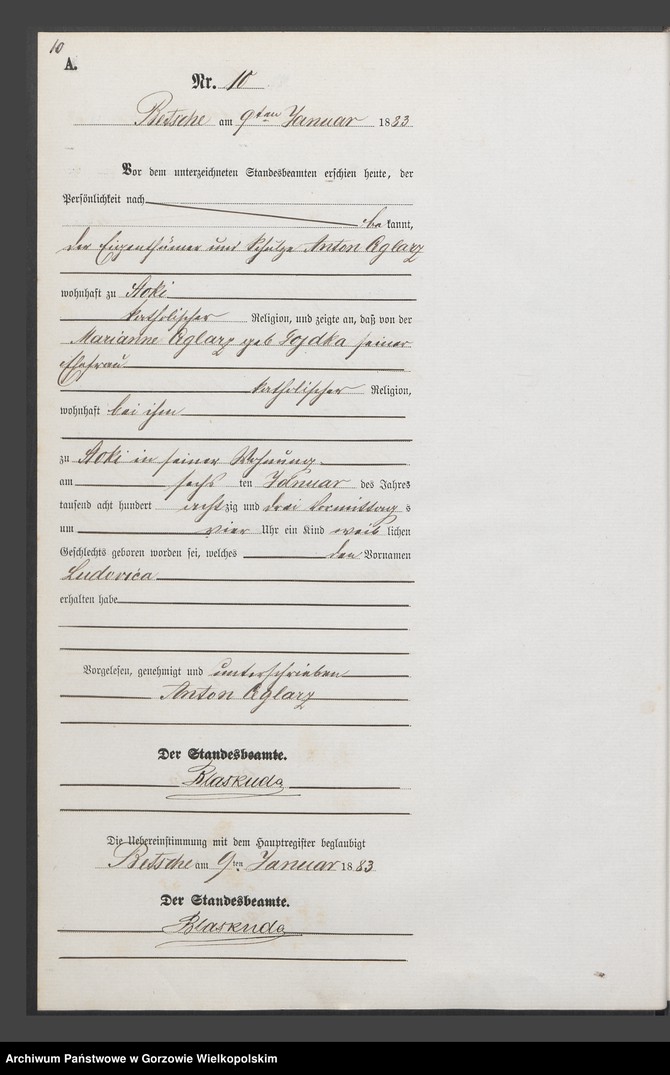 10
A.
Nr. 10
Betsche am 9ten Januar 1883
Vor dem unterzeichneten Standesbeamten erschien heute, der
Persönlichkeit nach
bekannt,
der Eigenthümer und Schulze Anton Cyglarz
wohnhaft zu Stoki
katholischer Religion, und zeigte an, daß von der
Marianne Cyglarz geb Gojdka seiner
Ehefrau
katholischer Religion,
wohnhaft bei ihm
zu Stoki in seiner Wohnung
am sechs ten Januar des Jahres
tausend acht hundert achtzig und drei Vormittags
um vier Uhr ein Kind weiblichen
Geschlechts geboren worden sei, welches den Vornamen
Ludovica
erhalten habe
Vorgelesen, genehmigt und unterschrieben
Anton Cyglarz
Der Standesbeamte.
Blaskuda
Die Uebereinstimmung mit dem Hauptregister beglaubigt
Betsche am 9ten Januar 1883
Der Standesbeamte.
Blaskuda
Archiwum Państwowe w Gorzowie Wielkopolskim